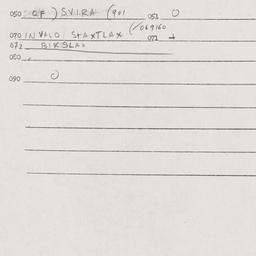 050 OF ) SVIRA (901 051 O
070 INVALO STAXTLAX (069160 071 +
072 BIKSLAX
080
090 O